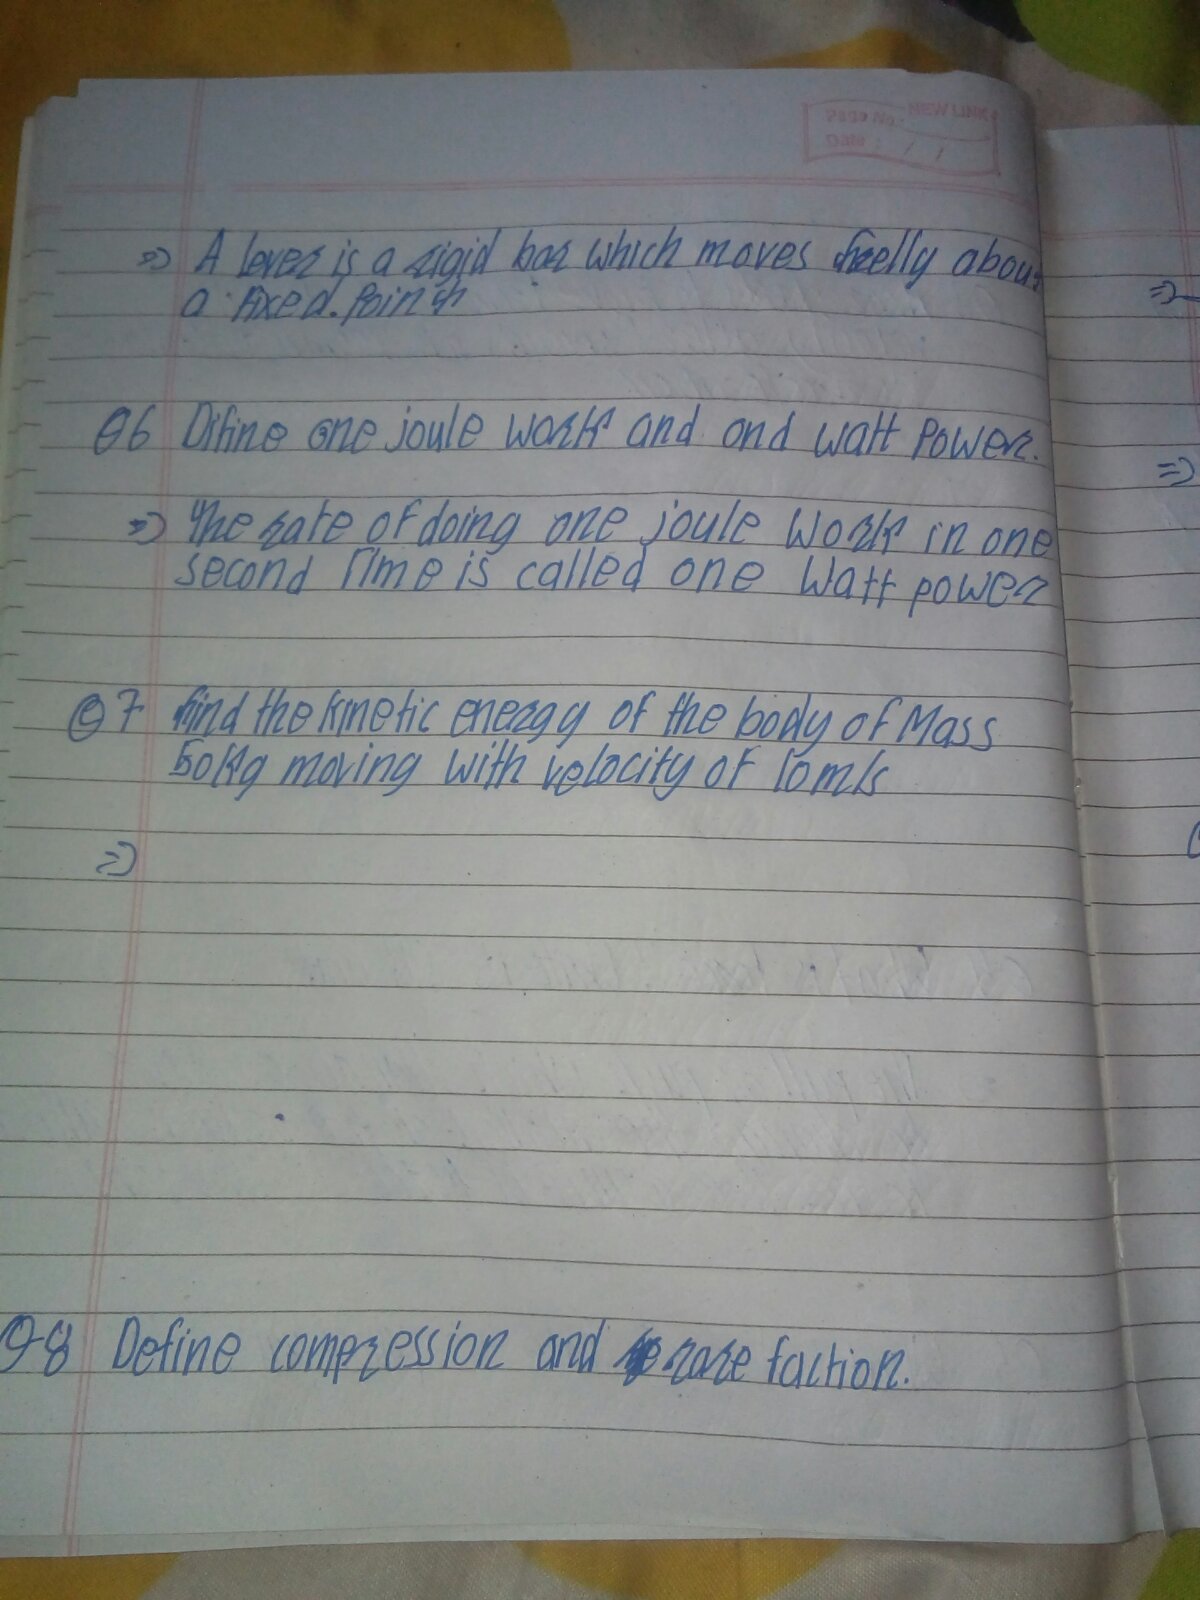 NEW LINK
Page No.
Date : / /
=) A lever is a rigid bar which moves freelly about
a fixed. Point
Q6 Difine one joule work and ond watt Power.
=) The rate of doing one joule work in one
second Time is called one Watt power
Q7 find the kinetic energy of the body of Mass
50kg moving with velocity of 10m/s
=)
Q-8 Define compression and rare faction.
=)
=)